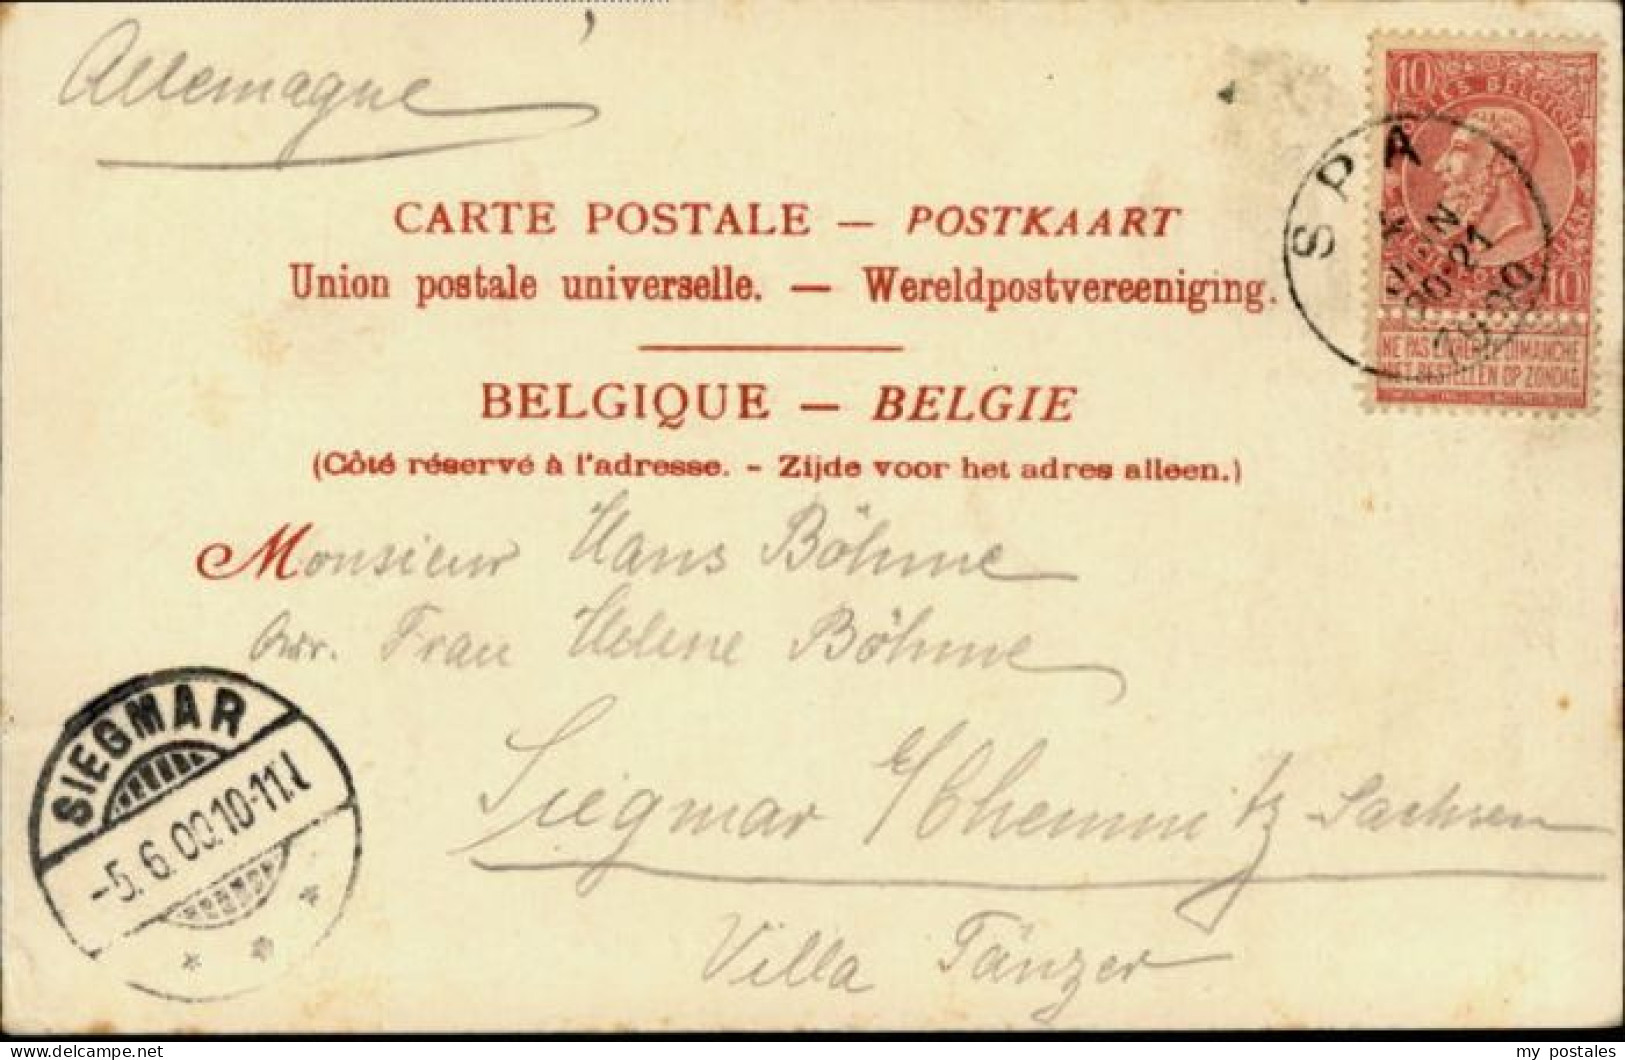 Allemagne
10
POSTES BELGIQUE
10
NE PAS LIVRER LE DIMANCHE
NIET BESTELLEN OP ZONDAG
SPA
4
JUIN
20-21
1900
CARTE POSTALE — POSTKAART
Union postale universelle. — Wereldpostvereeniging.
BELGIQUE — BELGIE
(Côté réservé à l'adresse. - Zijde voor het adres alleen.)
Monsieur Hans Böhme
Frau Helene Böhme
Siegmar b/Chemnitz Sachsen
Villa Tänzer
SIEGMAR
-5.6.00.10-11V.
my postales